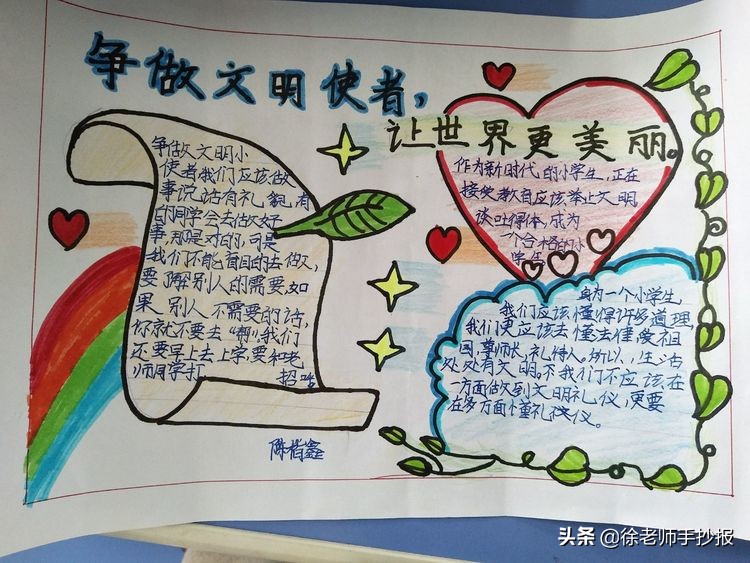 争做文明使者，
让世界更美丽。
争做文明小
使者我们应该做
事说话有礼貌,有
的同学会去做好
事,那是对的,可是
我们不能盲目的去做,
要了解别人的需要,如
果别人不需要的话,
你就不要去“帮”,我们
还要早上去上学,要和老
师同学打
招呼
陈楷鑫
作为新时代,的小学生,正在
接受教育应该举止文明
谈吐得体,成为
一个合格的小
学生
身为一个小学生
我们应该懂得许多道理,
我们更应该去懂法律,爱祖
国,尊师长,礼待人,所以,生活
处处有文明,不我们不应该在
一方面做到文明礼仪,更要
在多方面懂礼仪。
头条 @徐老师手抄报